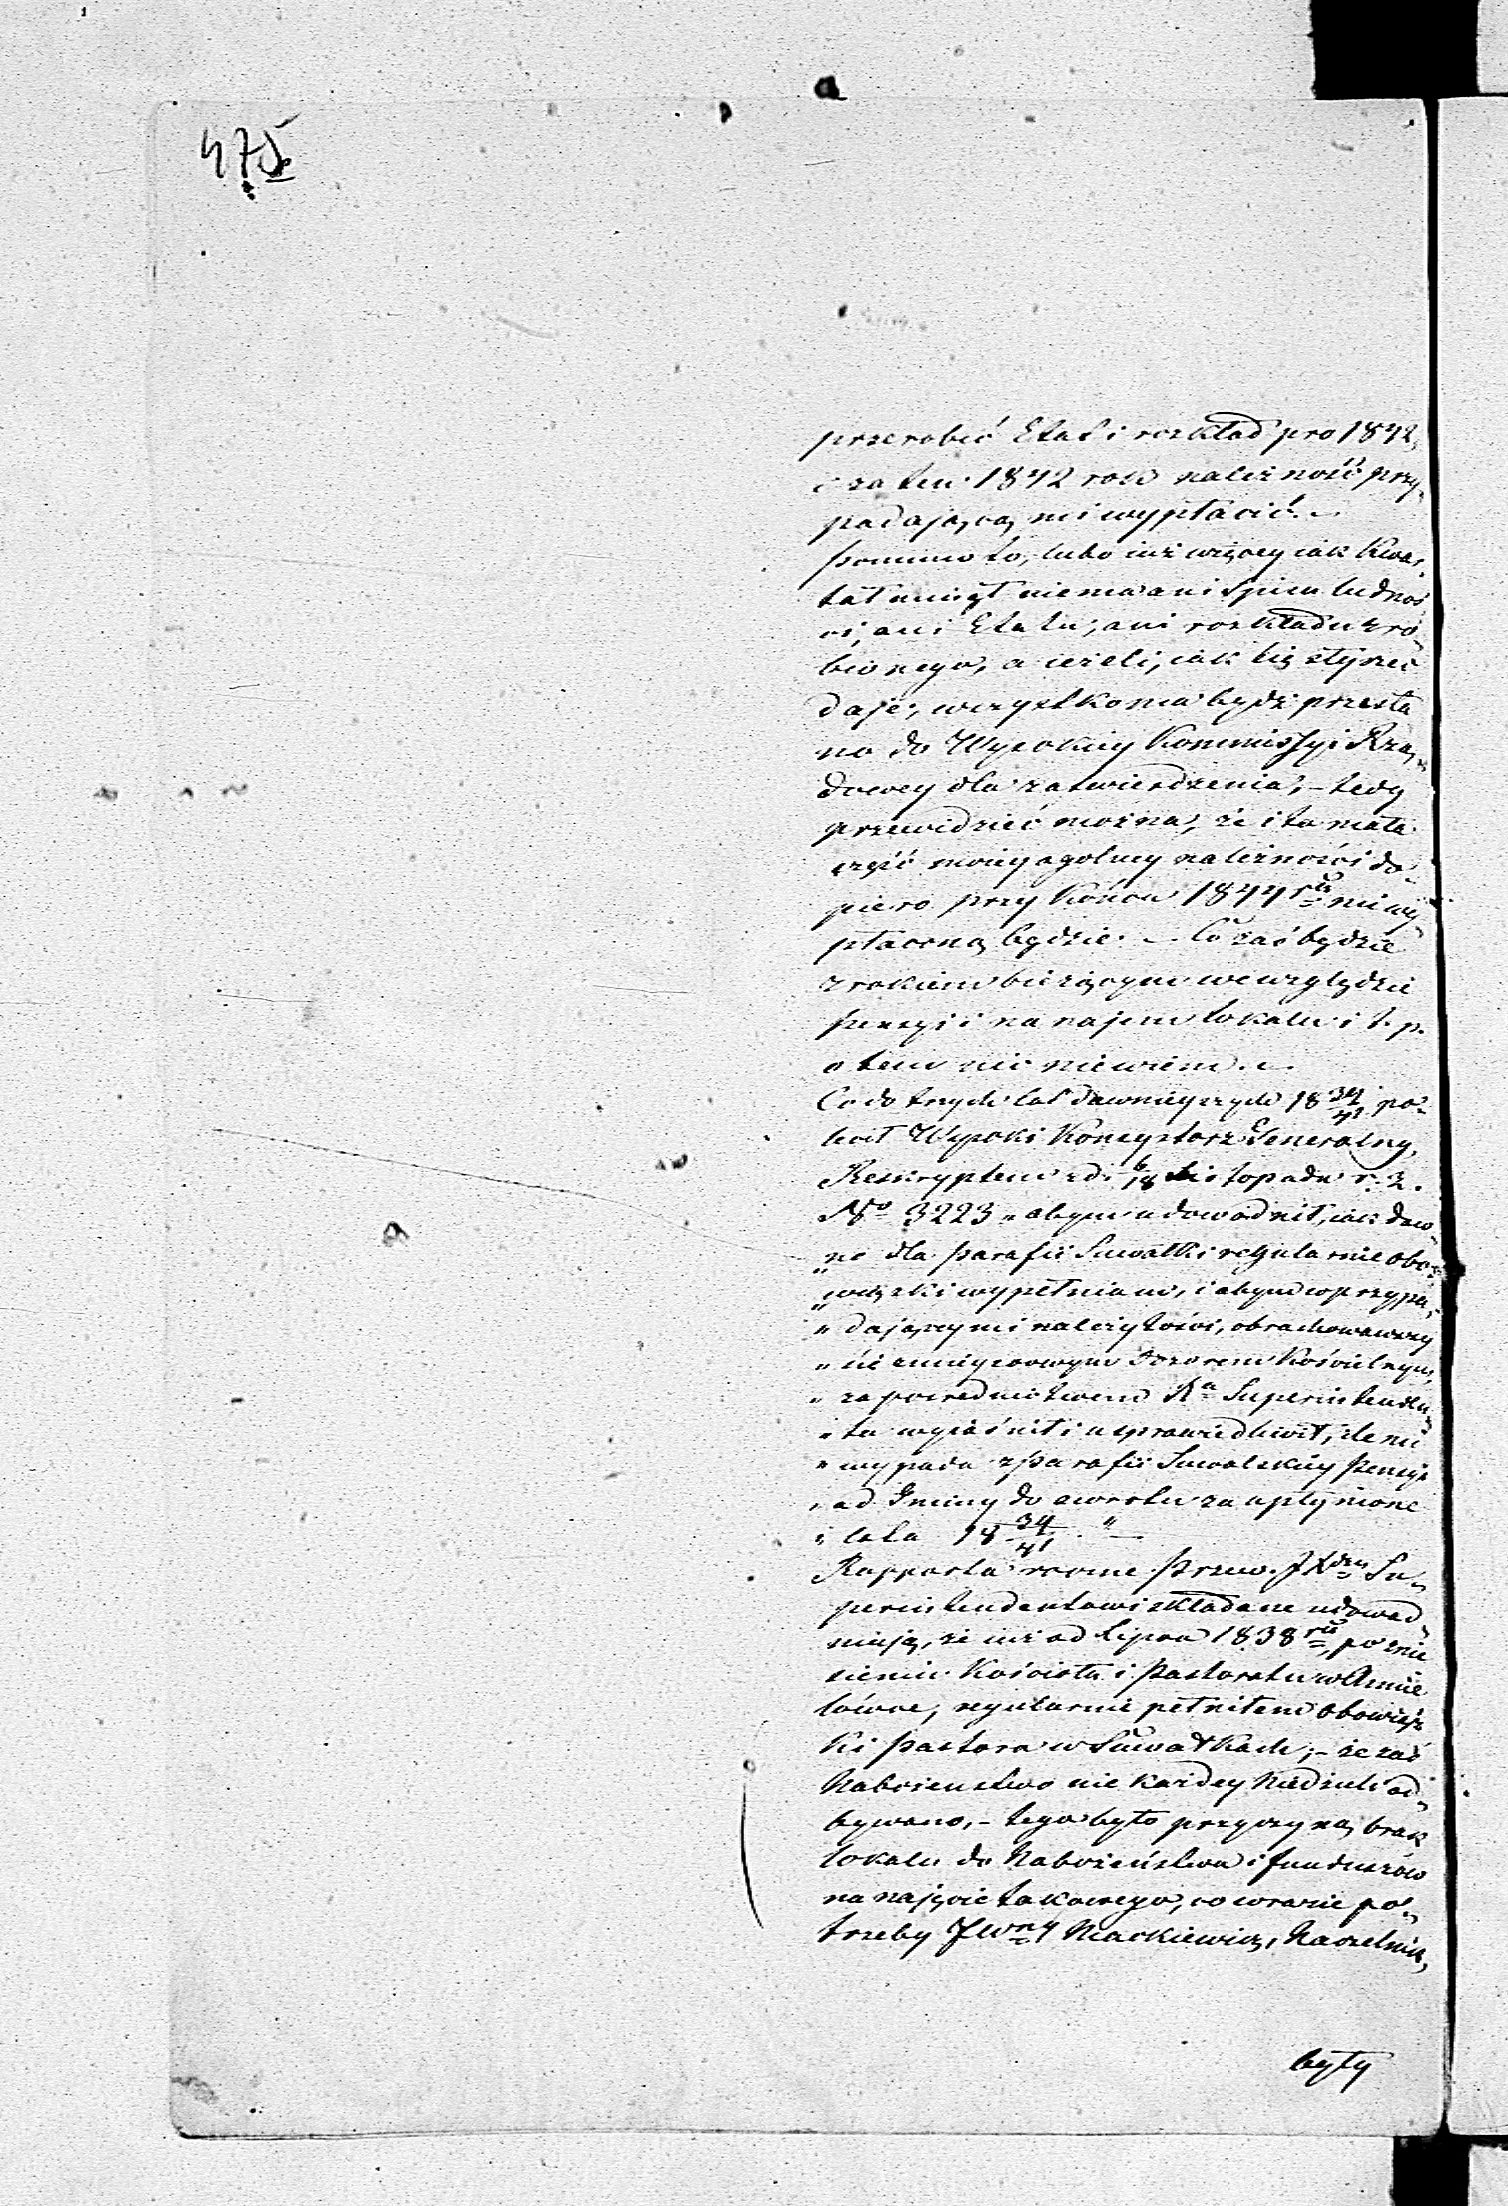 475
przerobić Etat i rozkład pro 1842,
i za ten 1842 rok należność przy-
padającą mi wypłacić. –
Pomimo to, lubo już więcey jak Kwar-
tał minął niema ani Spisu ludnoś-
ci, ani Etatu, ani rozkładu zro-
bionego, a jeżeli, jak się słyszeć
daje, wszystko ma bydź przesła
no do Wysokiey Kommissyi Rzą-
dowey dla zatwierdzenia, – tedy
przewidzieć można, że i ta mała
część moiey ogolney należności do-
piero przy Końcu 1844 ru mi wy-
płaconą będzie. – Co zaś będzie
z rokiem bieżącym we względzie
Pensyi i na najem lokalu i t. p.
o tem nic niewiem. –
Co do tych lat dawnieyszych 18 34/41 po-
lecił Wysoki Konsystorz Generalny,
Reskryptem z d. 6/18 Listopada r. z.
No 3223 „abym udowodnił, jak daw-
„no dla Parafii Suwałki regularnie obo-
„wiązki wypełniam, i abym w przypa-
„dającym mi należytości, obrachowawszy
„się z mieyscowym Dozorem Kościelnym,
„za pośrednictwem Xa Superintenden-
„ta wyiaśnił i usprawiedliwił, ile mi
„wypada z Parafii Suwalskiey Pensyi
„od Gminy do zwrotu za upłynione
„lata 18 34/41 ." –
Rapporta roczne Przew. JXdzu Su-
perintendentowi składane udowad-
niają, że już od Lipca 1838 ru, po znie
sieniu Kościoła i Pastoratu w Chmie
lówce, regularnie pełniłem obowiąz
ki Pastora w Suwałkach; – że zaś
Nabożeństwo nie każdey Niedzieli od-
bywano, – tego było przyczyną brak
lokalu do Nabożeństwa i funduszów
na najęcie takowego, co w razie po-
trzeby JWny Mackiewicz, Naczelnik,
były